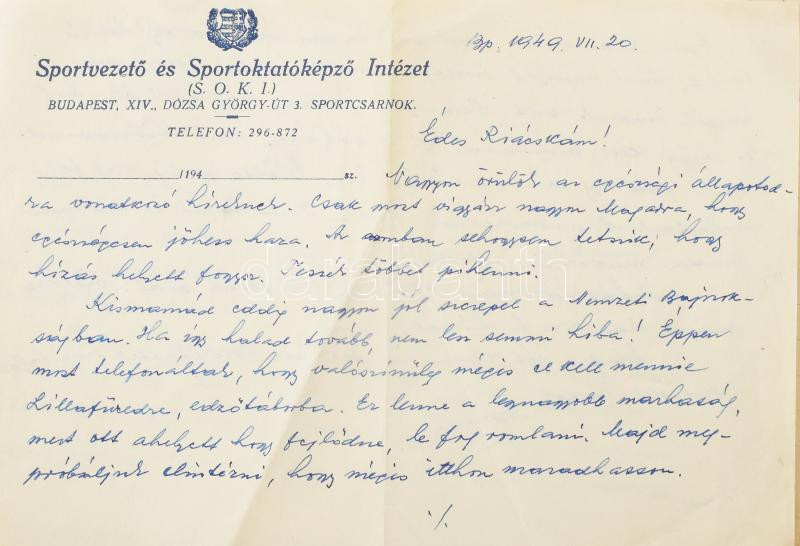 Bp. 1949. VII. 20.
Sportvezető és Sportoktatóképző Intézet
(S. O. K. I.)
BUDAPEST, XIV., DÓZSA GYÖRGY-ÚT 3. SPORTCSARNOK.
TELEFON: 296-872
Édes Riácskám!
/194 sz.
Nagyon örülök az egészségi állapotod-
ra vonatkozó híreknek. Csak most vigyázz nagyon Magadra, hogy
egészségesen jöhess haza. Az azonban sehogysem tetszik, hogy
hízás helyett fogysz. Tessék többet pihenni.
Kismamád eddig nagyon jól szerepel a Nemzeti Bajnok-
ságban. Ha így halad tovább, nem lesz semmi hiba! Éppen
most telefonáltak, hogy valószínűleg mégis el kell mennie
Lillafüredre, edzőtáborba. Ez lenne a legnagyobb marhaság,
mert ott ahelyett hogy fejlődne, le fog romlani. Majd meg-
próbáljuk elintézni, hogy mégis itthon maradhasson.
./.
darabanth